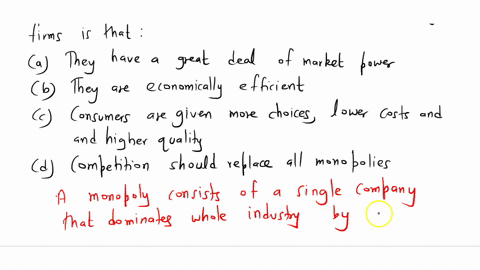 firms is that :
(a) They have a great deal of market power
(b) They are economically efficient
(c) Consumers are given more choices, lower costs and
and higher quality
(d) Competition should replace all monopolies
A monopoly consists of a single company
that dominates whole industry by